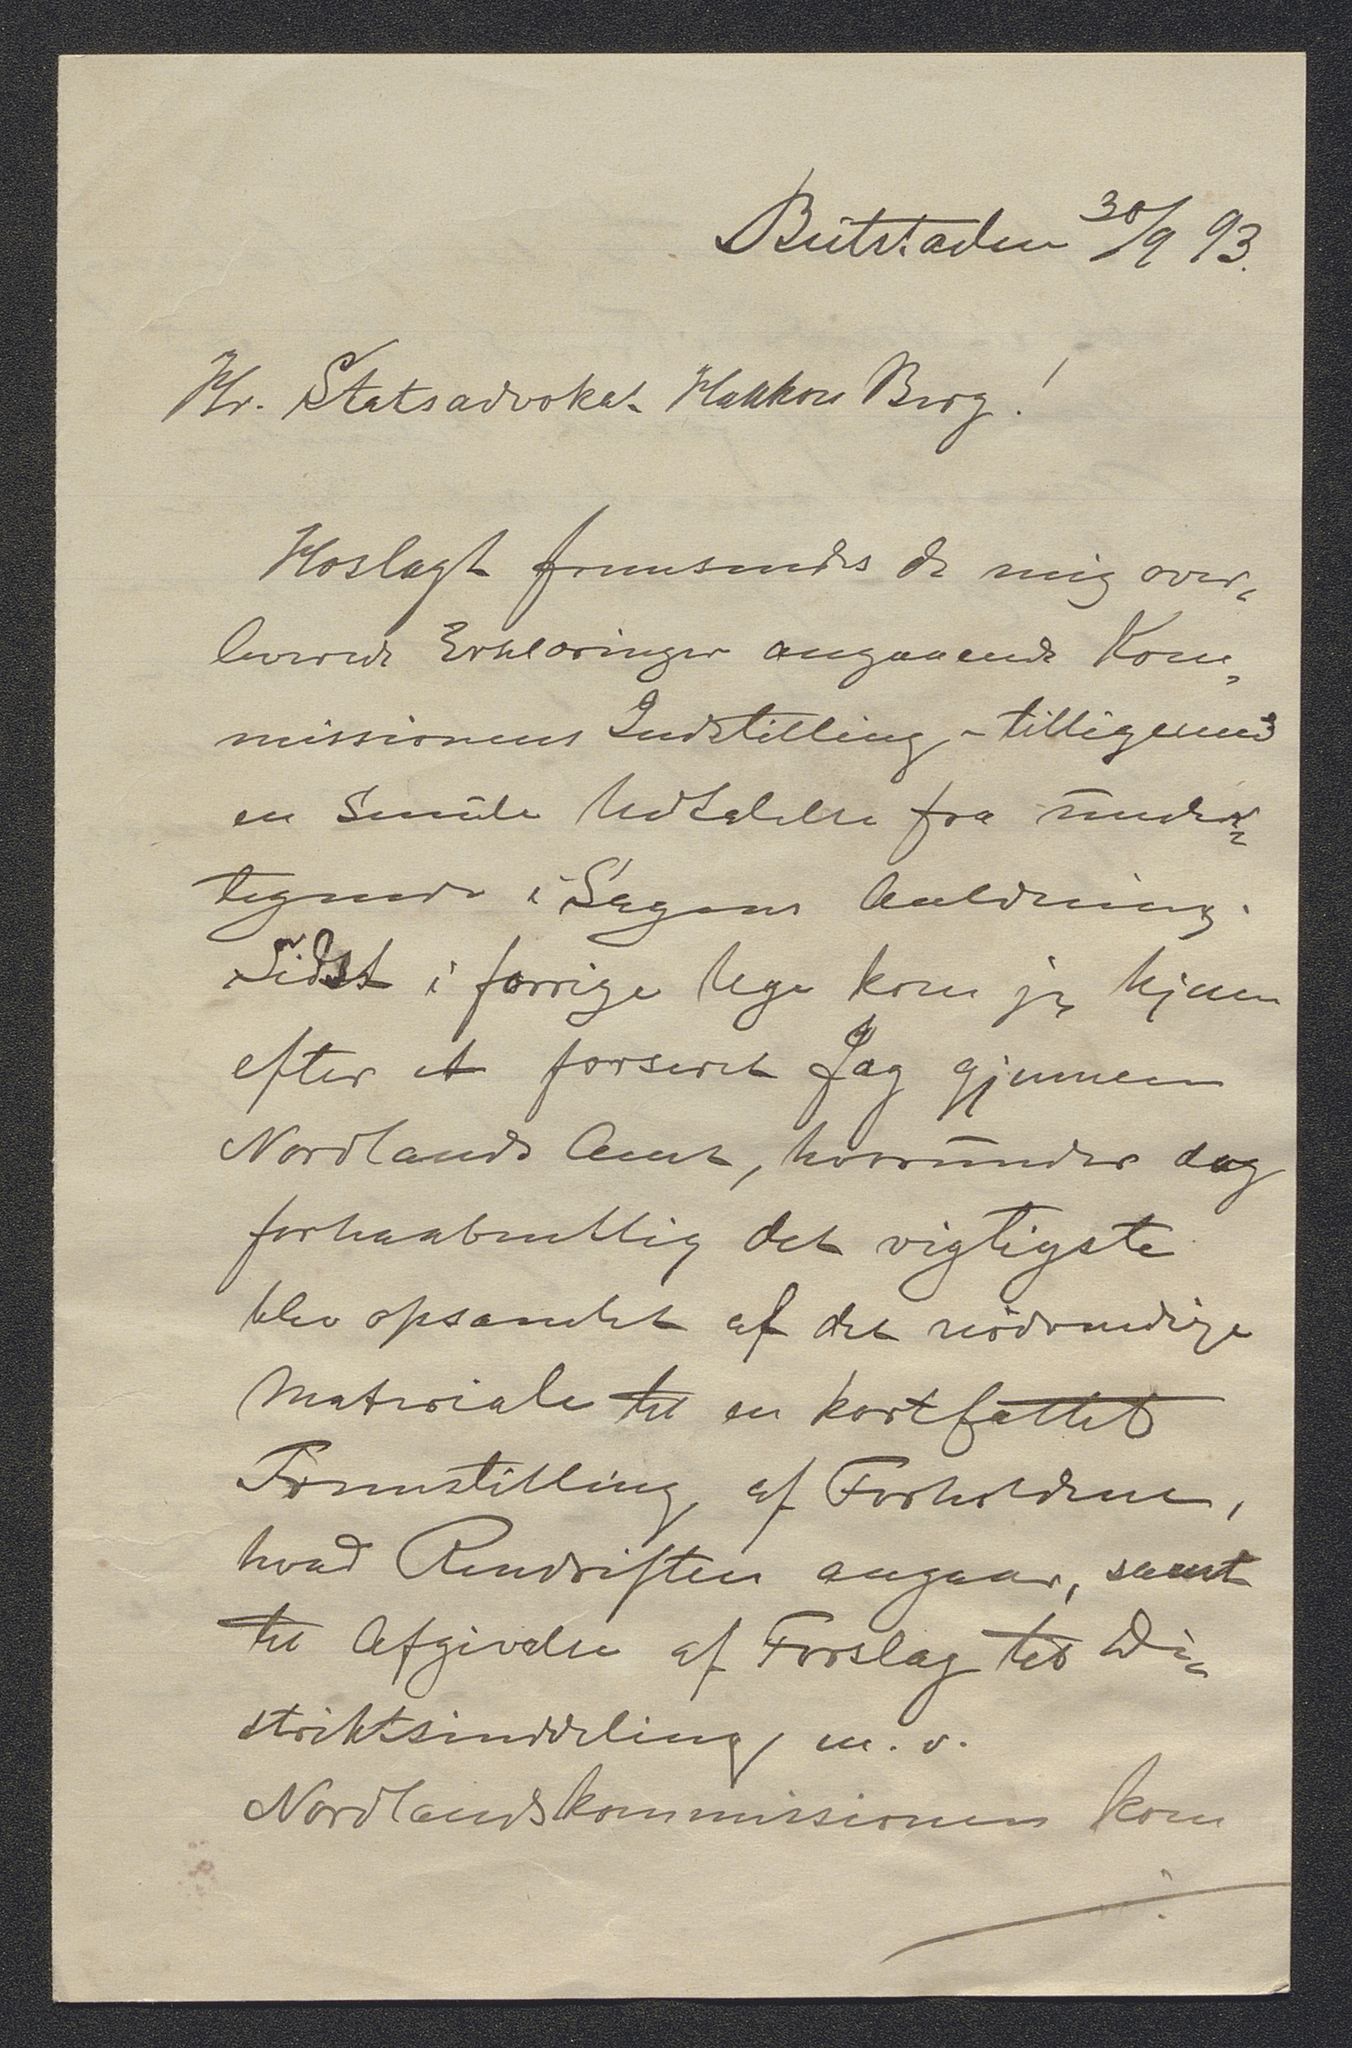 Beitstaden 30/9 93.
Hr. Statsadvokat Haakon Berg!
Hoslagt fremsendes de mig over-
leverede Erklæringer angaaende Kom-
missionens Indstilling, - tilligemed
en Smule Udtalelse fra under-
tegnede i Sagens Anledning.
Sidst i forrige Uge kom jeg hjem
efter et forseret Jag gjennem
Nordlands Amt, hvorunder dog
forhaabentlig det vigtigste
blev opsamlet af det nødvendige
Materiale til en kortfattet
Fremstilling af Forholdene,
hvad Rendriften angaar, samt
til Afgivelse af Forslag til Di-
striktsinddeling m. v.
Nordlandskommissionen kom